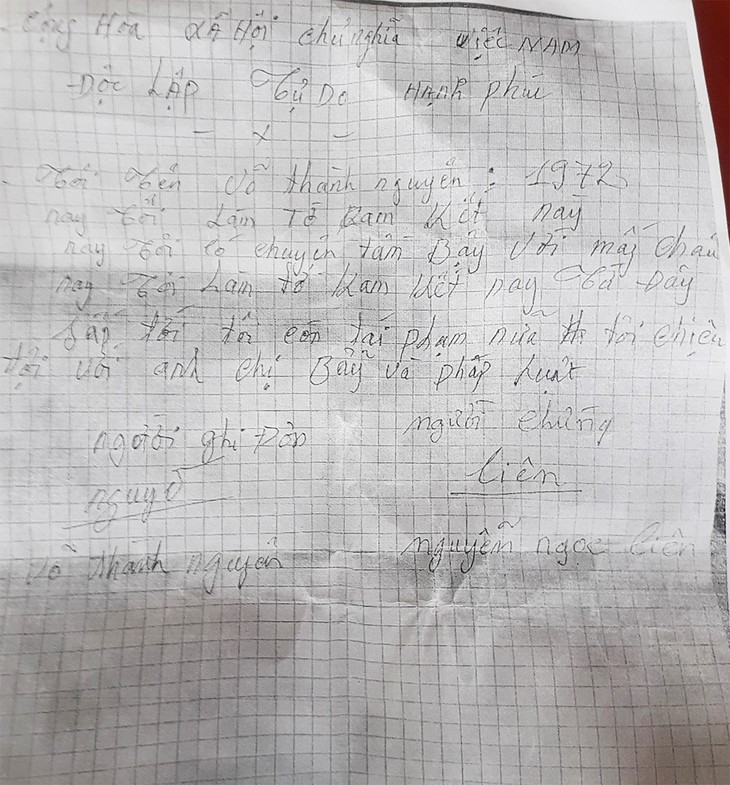 Cộng Hòa Xã Hội chủ nghĩa Việc NAM
- Độc LẬP Tự Do HẠNH phúc
- x -
- Tôi Tên Võ thành nguyên : 1972
nay Tôi Làm Tờ Kam Kết này
nay Tôi có chuyện tầm Bậy với mấy cháu
nay Tôi Làm tờ Kam Kết nay Từ Đây
Sấp tới tôi còn tái phạm nữa thì tôi chiệu
tội với anh chị Bảy và pháp Luật
người ghi Đơn người chứng
nguyê Liên
Võ thành nguyên nguyễn ngọc Liên